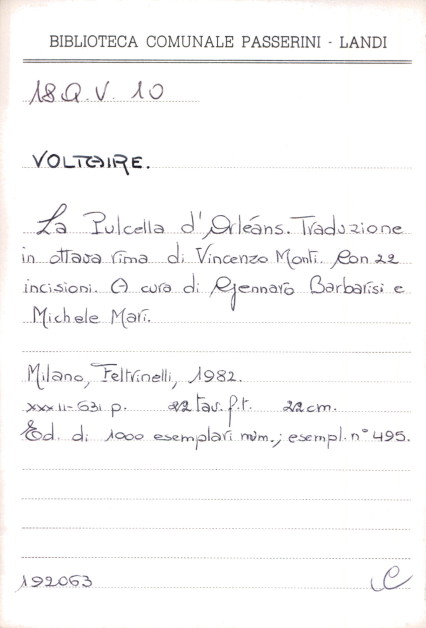 BIBLIOTECA COMUNALE PASSERINI - LANDI
18 Q. V. 10
VOLTAIRE.
La Pulcella d'Orléans. Traduzione
in ottava rima di Vincenzo Monti. Con 22
incisioni. A cura di Gennaro Barbarisi e
Michele Mari.
Milano, Feltrinelli, 1982.
XXXII-631 p. 22 tav. f.t. 22 cm.
Ed. di 1000 esemplari num.; esempl. n° 495.
192063 C